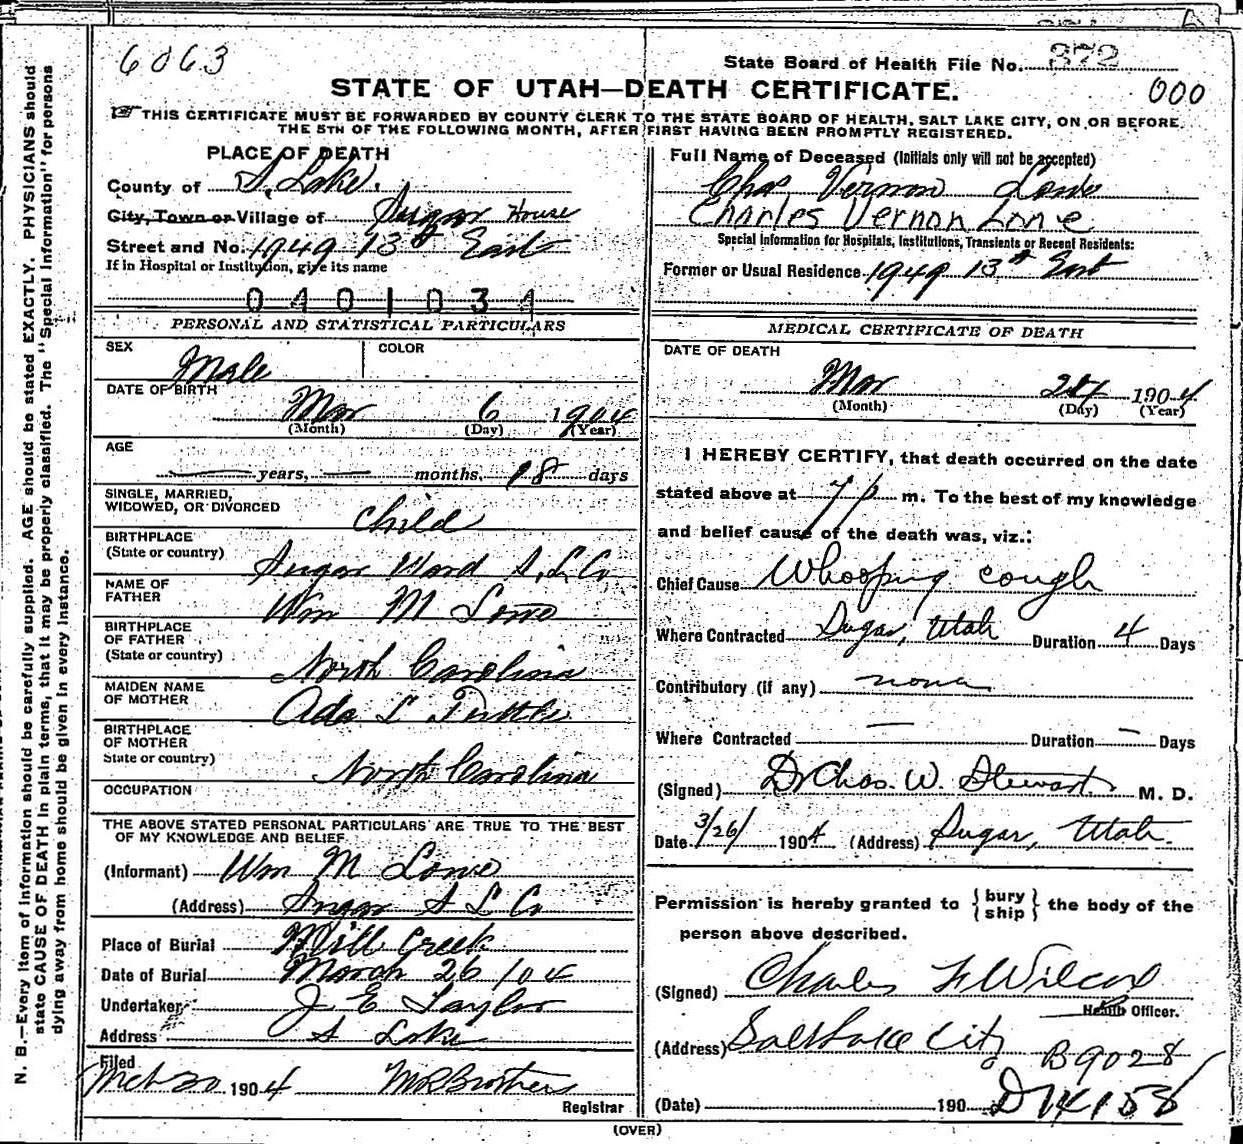 6063
State Board of Health File No. 372
STATE OF UTAH—DEATH CERTIFICATE.
000
THIS CERTIFICATE MUST BE FORWARDED BY COUNTY CLERK TO THE STATE BOARD OF HEALTH, SALT LAKE CITY, ON OR BEFORE
THE 5TH OF THE FOLLOWING MONTH, AFTER FIRST HAVING BEEN PROMPTLY REGISTERED.
PLACE OF DEATH
County of S. Lake.
City, Town or Village of Sugar House
Street and No. 1949 13th East
If in Hospital or Institution, give its name
0401034
PERSONAL AND STATISTICAL PARTICULARS
SEX Male COLOR
DATE OF BIRTH
Mar 6 1904
(Month) (Day) (Year)
AGE
years, months, 18 days
SINGLE, MARRIED,
WIDOWED, OR DIVORCED Child
BIRTHPLACE
(State or country) Sugar Ward S. L. Co
NAME OF
FATHER Wm M Lowe
BIRTHPLACE
OF FATHER
(State or country) North Carolina
MAIDEN NAME
OF MOTHER Ada L Tuttle
BIRTHPLACE
OF MOTHER
State or country) North Carolina
OCCUPATION
THE ABOVE STATED PERSONAL PARTICULARS ARE TRUE TO THE BEST
OF MY KNOWLEDGE AND BELIEF
(Informant) Wm M Lowe
(Address) Sugar S L Co
Place of Burial Mill Creek
Date of Burial March 26/04
Undertaker J E Taylor
Address S Lake
Filed
1904
Registrar
Full Name of Deceased (Initials only will not be accepted)
Chas Vernon Lowe
Charles Vernon Lowe
Special Information for Hospitals, Institutions, Transients or Recent Residents:
Former or Usual Residence 1949 13th East
MEDICAL CERTIFICATE OF DEATH
DATE OF DEATH
Mar 24 1904
(Month) (Day) (Year)
I HEREBY CERTIFY, that death occurred on the date
stated above at 7 p m. To the best of my knowledge
and belief cause of the death was, viz.:
Chief Cause Whooping cough
Where Contracted Sugar, Utah Duration 4 Days
Contributory (if any) none
Where Contracted — Duration — Days
(Signed) Dr Chas. W. Stewart M. D.
Date 3/26/ 1904 (Address) Sugar, Utah.
Permission is hereby granted to { bury
ship } the body of the
person above described.
(Signed) Charles F Wilcox
Health Officer.
(Address) Salt Lake City B9028
(Date) 190 D14158
(OVER)
N. B.—Every item of information should be carefully supplied. AGE should be stated EXACTLY. PHYSICIANS should
state CAUSE OF DEATH in plain terms, that it may be properly classified. The "Special Information" for persons
dying away from home should be given in every instance.